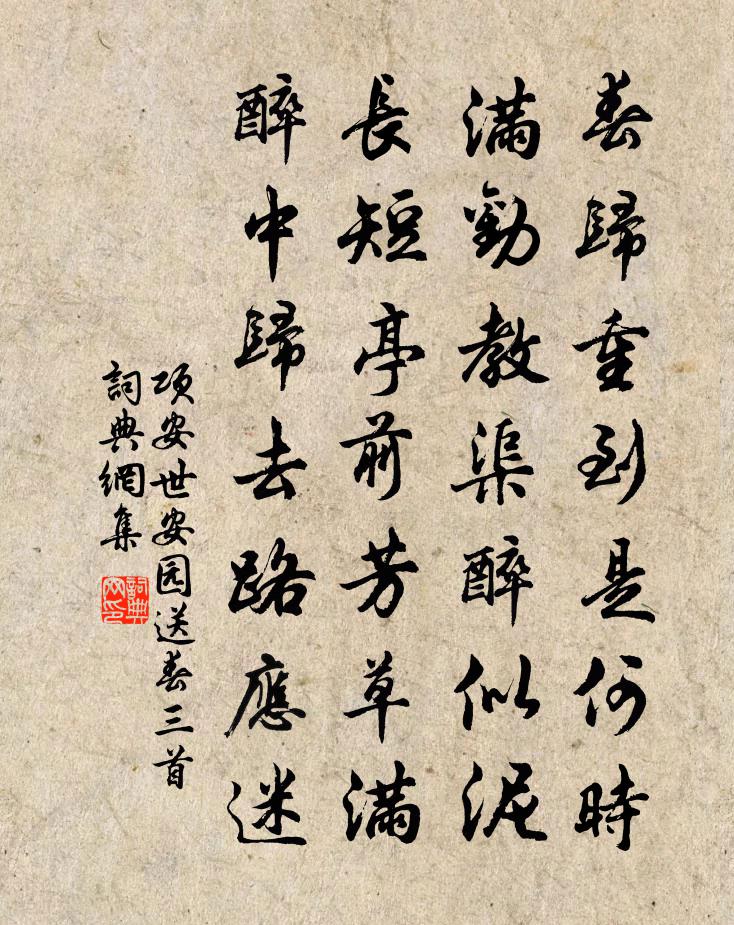 春歸重到是何時
滿勸教渠醉似泥
長短亭前芳草滿
醉中歸去路應迷
項安世安园送春三首
詞典網集
詞典網印